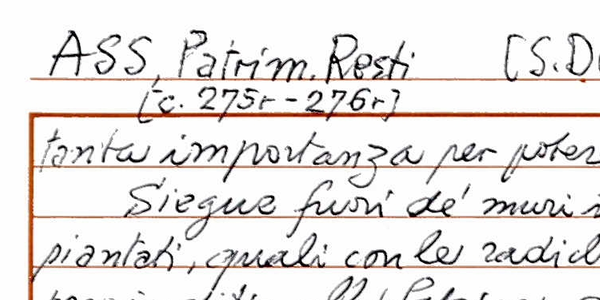 ASS, Patrim. Resti [S.D
[c. 275r - 276r]
tanta importanza per poter
Siegue fuori de' muri
piantati, quali con le radic